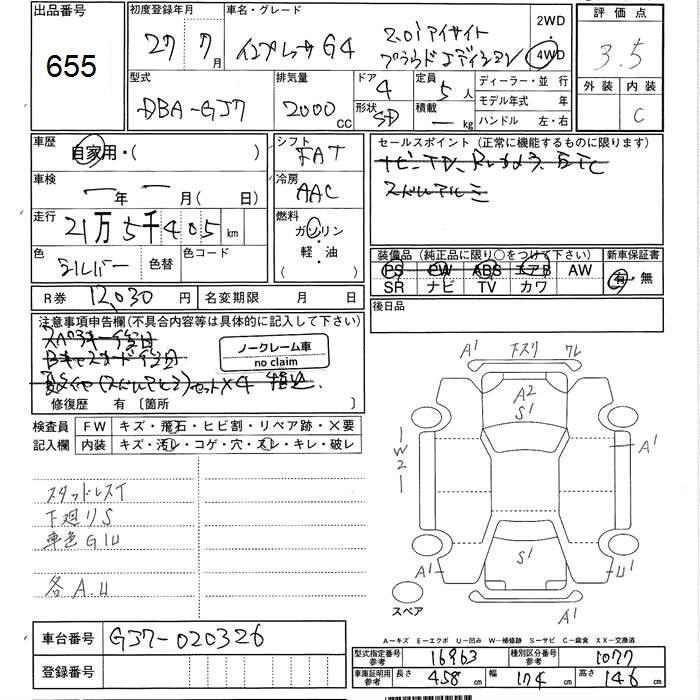 出品番号
655
初度登録年月
27 7月
車名・グレード
インプレッサG4
2.0iアイサイト
プラウドエディション
2WD
・
4WD
評価点
3.5
外装 内装
C
型式
DBA-GJ7
排気量
2000 CC
ドア
4
形状
SD
定員
5人
積載
ー kg
ディーラー・並行
モデル年式 年
ハンドル 左・右
車歴
自家用・( )
車検
ー年ー月(日)
走行
21万5千405km
色
シルバー 色替
色コード
シフト
FAT
冷房
AAC
燃料
ガソリン
軽・油
( )
セールスポイント(正常に機能するものに限ります)
装備品(純正品に限り○をつけて下さい)
PS PW ABS エアB AW
SR ナビ TV カワ
新車保証書
有・無
R券 12,030円
名変期限 月 日
後日品
注意事項申告欄(不具合内容等は具体的に記入して下さい)
ノークレーム車
no claim
修復歴 有 〔箇所 〕
検査員
記入欄
FW キズ・飛石・ヒビ割・リペア跡・×要
内装 キズ・汚レ・コゲ・穴・スレ・キレ・破レ
スタッドレスT
下廻りS
車色G1U
各A.U
A1 下スリ ワレ
A2
S1
1
W
2
1
A1
S1
A1
U1
A1
スペア
車台番号 GJ7-020326
登録番号
A-キズ E-エクボ U-凹み W-補修跡 S-サビ C-腐食 XX-交換済
型式指定番号
参考
16963
種別区分番号
参考
1077
車庫証明用
参考
長さ 458cm 幅 174cm 高さ 146cm